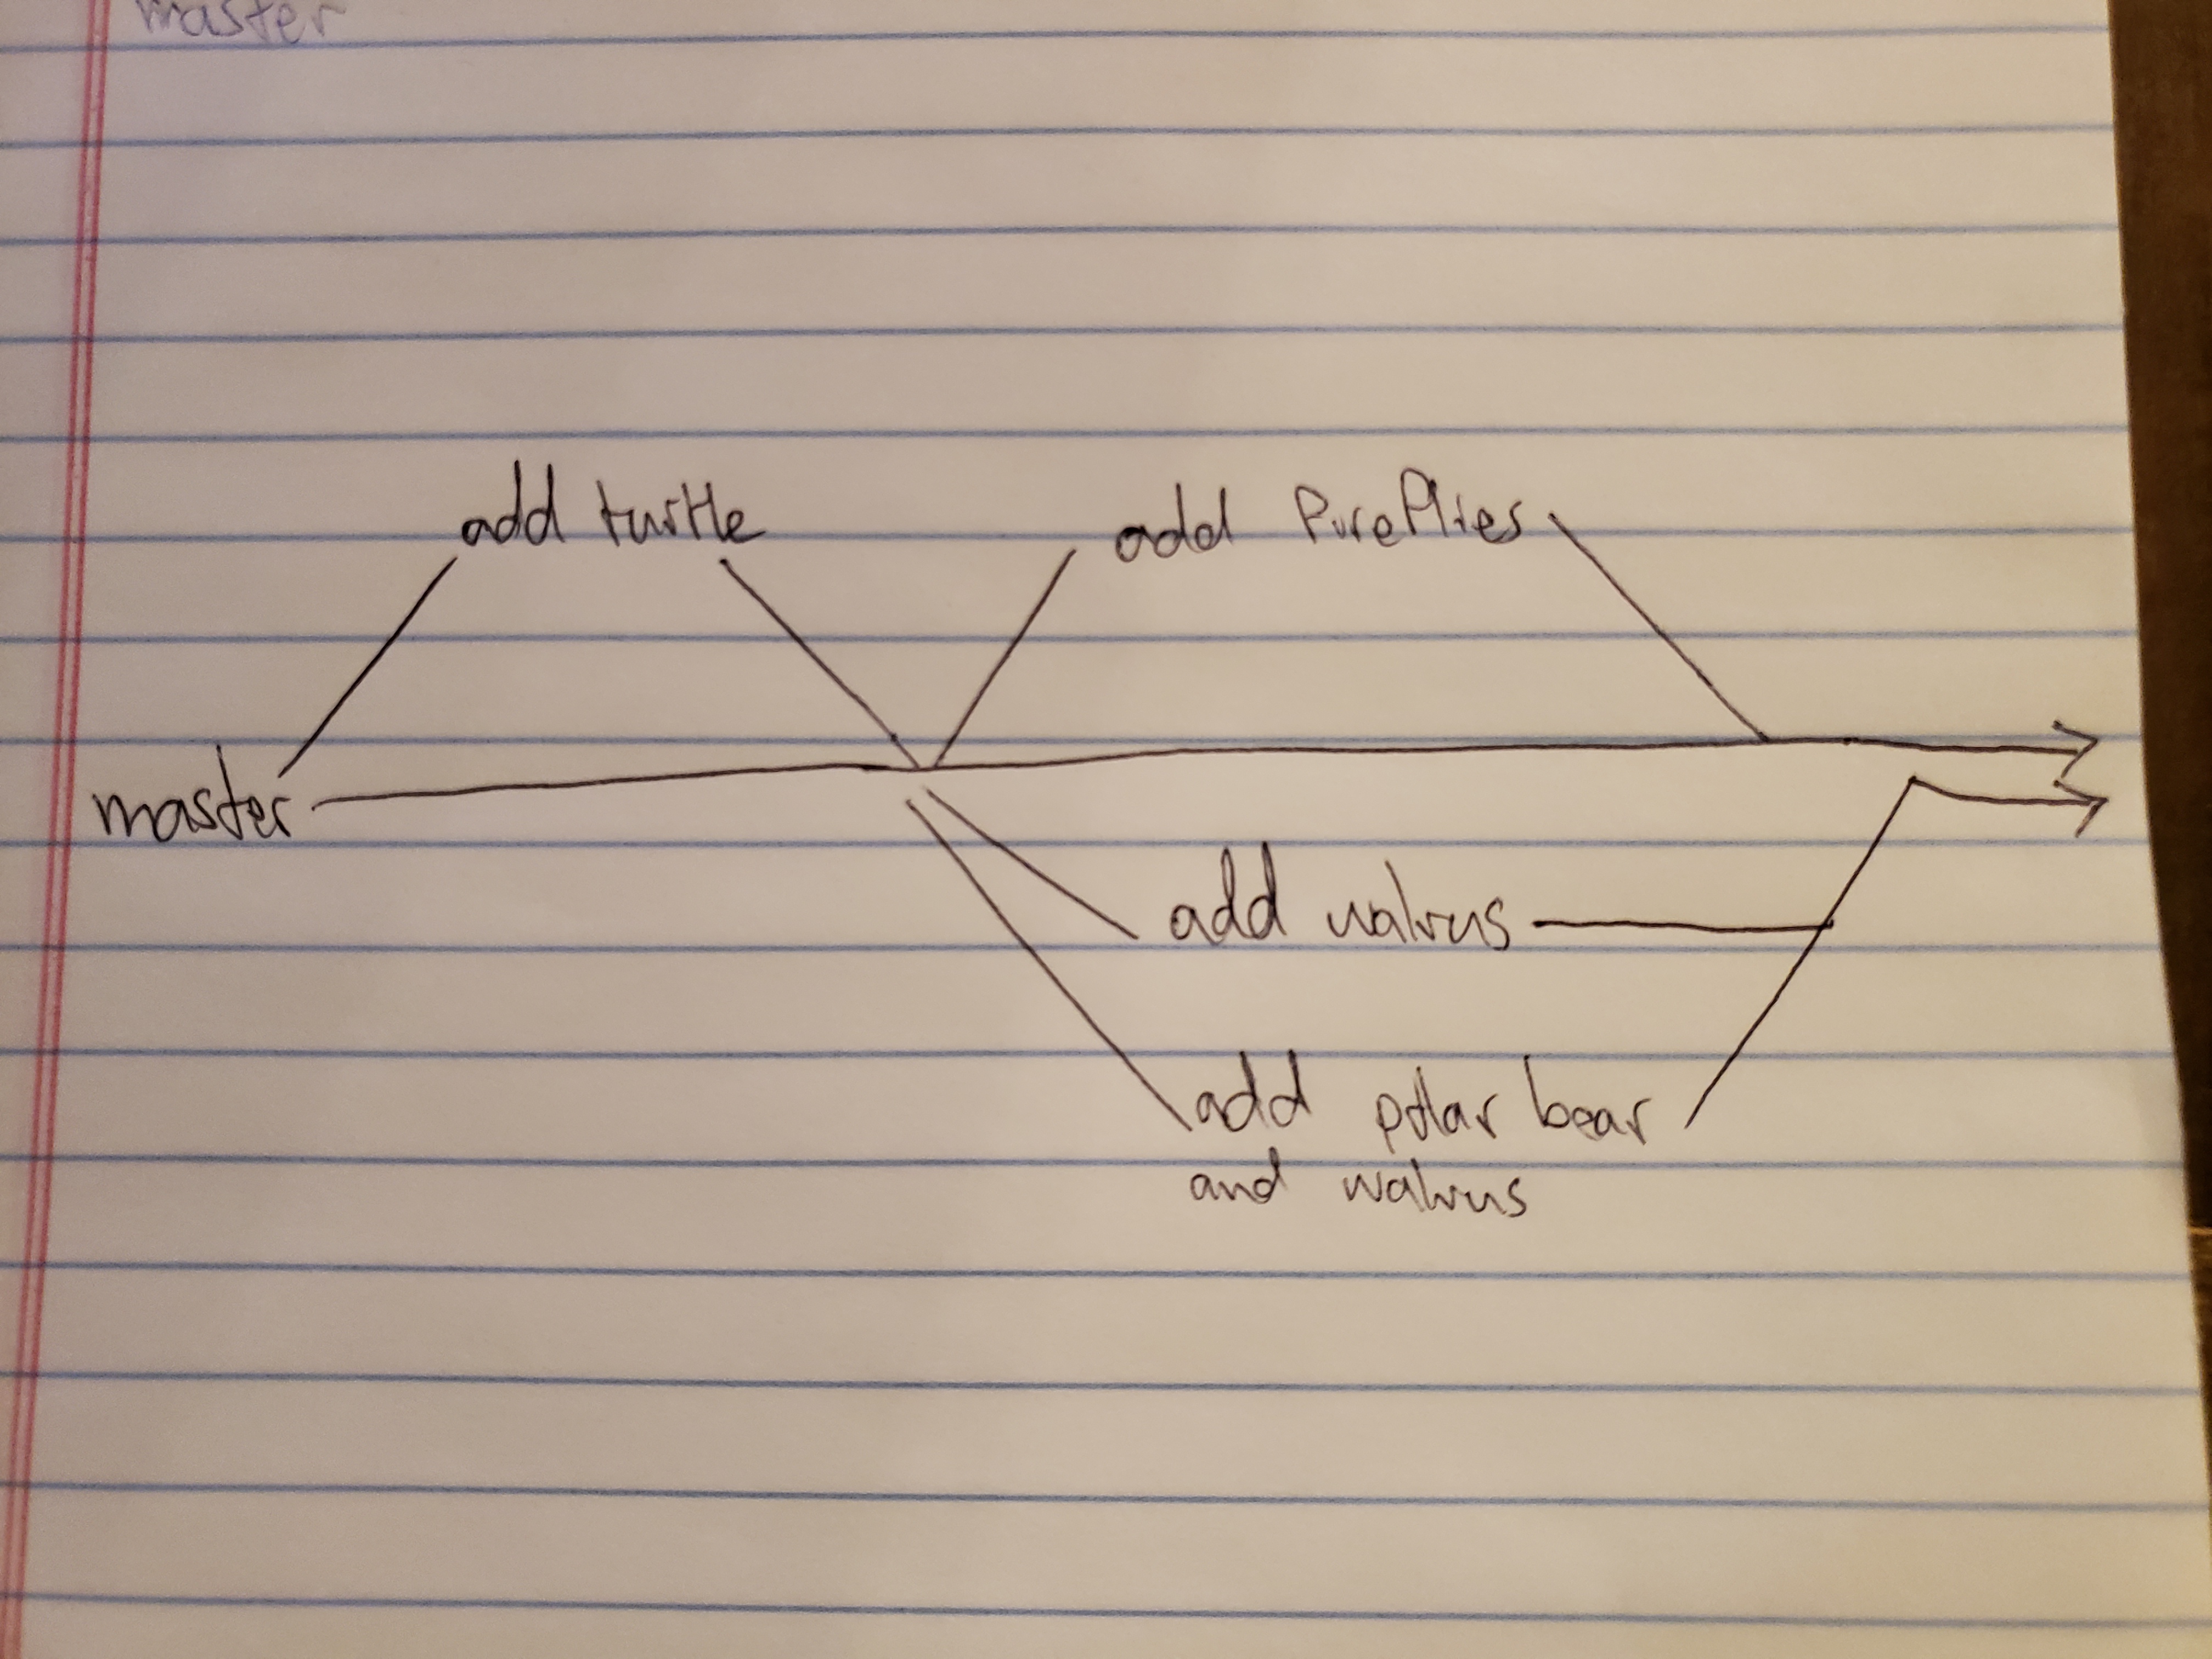 master
add turtle
add fireflies
master
add walrus
add polar bear
and walrus